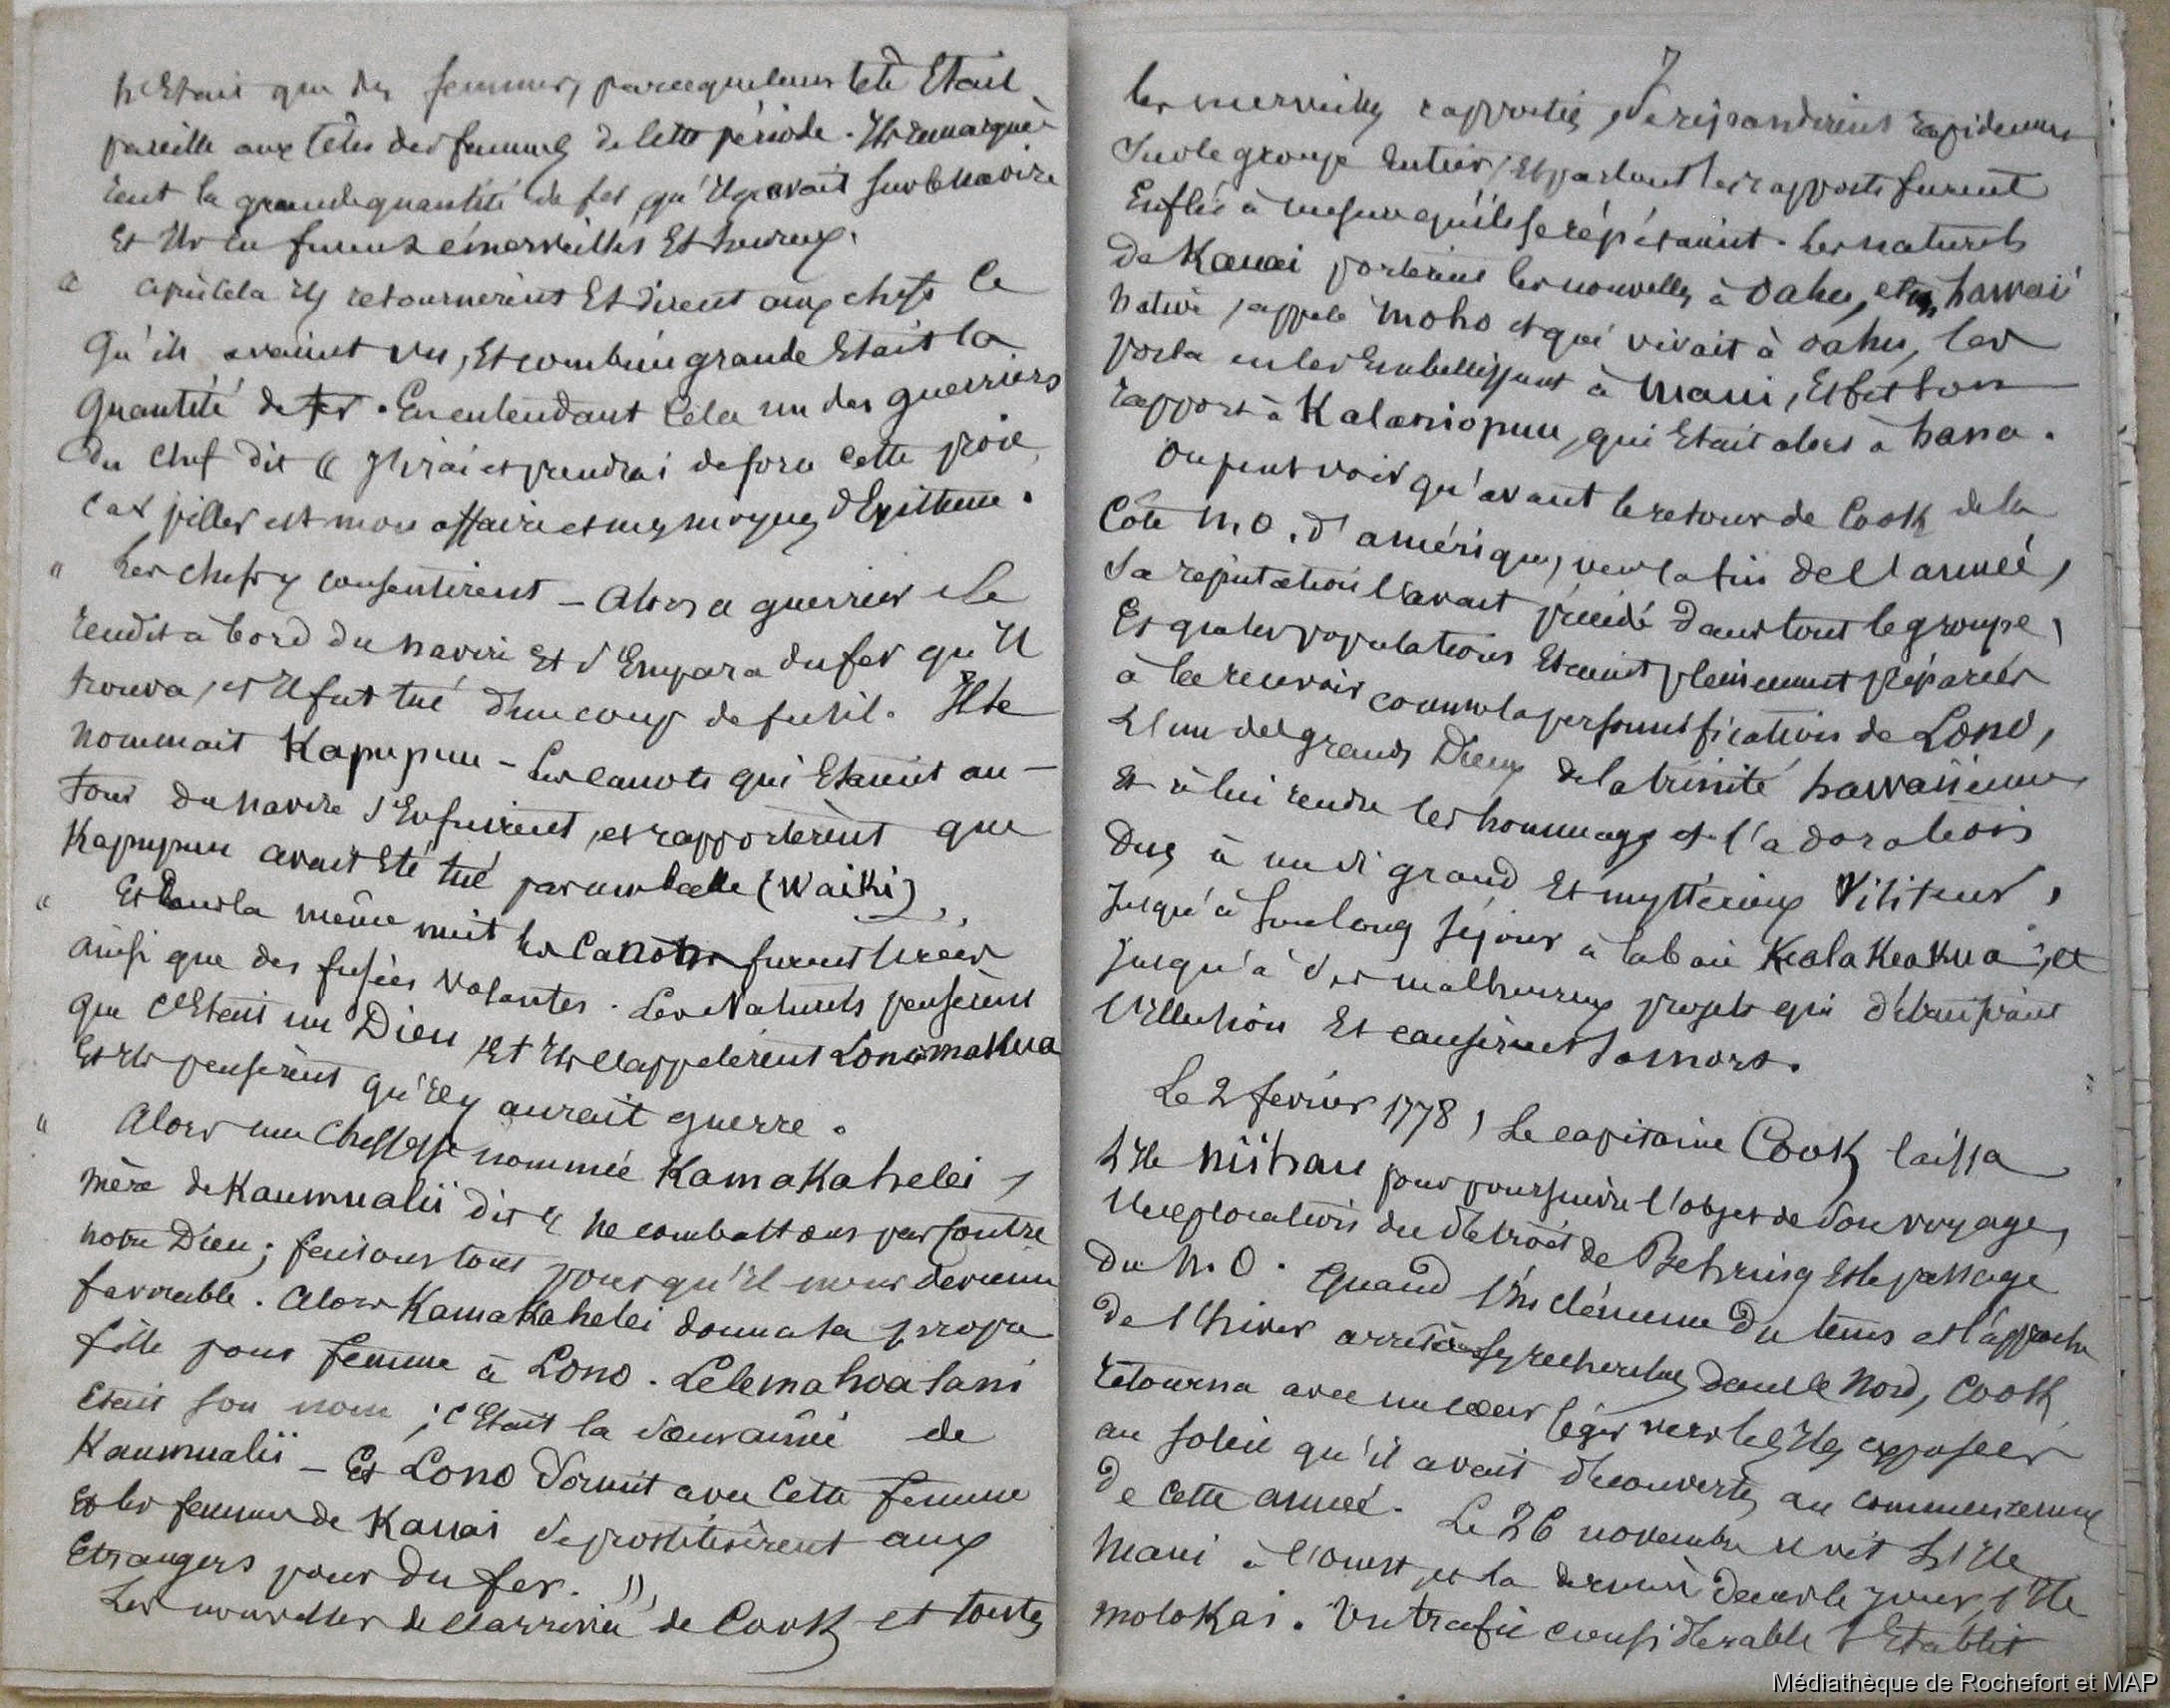 n'était que des femmes, parceque leur tête était
pareille aux têtes des femmes de cette période. Ils remarquè-
rent la grande quantité de fer, qu'il y avait sur le navire
et ils en furent émerveillés et heureux.
" après cela ils retournèrent et dirent aux chefs ce
qu'ils avaient vu, et combien grande était la
quantité de fer. En entendant cela un des guerriers
du chef dit " J'irai et prendrai de force cette proie,
car piller est mon affaire et mes moyens d'existence.
" Les chefs y consentirent – Alors ce guerrier se
rendit à bord du navire et s'empara du fer qu'il
trouva, et il fut tué d'un coup de fusil. Il se
nommait Kapupuu – Les canots qui étaient au-
tour du navire s'enfuirent, et rapportèrent que
Kapupuu avait été tué par une balle (Waiki)
" Et dans la même nuit les canons furent tirés
ainsi que des fusées volantes. Les naturels pensèrent
que c'était un Dieu, et ils l'appelèrent Lonomakua
et ils pensèrent qu'il y aurait guerre.
" Alors une cheffesse nommée Kamakahelei,
mère de Kaumualii dit " ne combattons pas contre
notre Dieu; faisons tout pour qu'il nous devienne
favorable. Alors Kamakahelei donna sa propre
fille pour femme à Lono. Lelemahoalani
était son nom; c'était la soeur ainée de
Kaumualii – Et Lono dormit avec cette femme
et les femmes de Kauai se prostituèrent aux
étrangers pour du fer. "
Les nouvelles de l'arrivée de Cook et toutes
7
les merveilles rapportées, se répandirent rapidement
sur le groupe entier, et partout les rapports furent
enflés à mesure qu'ils se répétaient. Les naturels
de Kauai portèrent les nouvelles à Oahu, et un hawaii
native, appelé Moho et qui vivait à Oahu, les
porta en les embellissant à Maui, et fit son
rapport à Kalaniopuu, qui était alors à Hana.
On peut voir qu'avant le retour de Cook de la
côte N.O. d'Amérique, vers la fin de l'année,
sa réputation l'avait précédé dans tout le groupe,
et que les populations étaient pleinement préparées
à le recevoir comme la personnification de Lono,
l'un des grands Dieux de la trinité hawaiienne
et à lui rendre les hommages et l'adoration
dus à un si grand et mystérieux visiteur,
jusqu'à son long séjour à la baie Kealakeakua, et
jusqu'à ses malheureux projets qui détruisirent
l'illusion et causèrent sa mort.
Le 2 février 1778, le capitaine Cook laissa
l'île Niihau pour poursuivre l'objet de son voyage,
l'exploration du détroit de Behring et le passage
du N.O. Quand l'inclémence du tems et l'approche
de l'hiver arrêtèrent ses recherches dans le Nord, Cook
retourna avec un coeur léger vers les îles exposées
au soleil qu'il avait découvertes au commencement
de cette année. Le 26 novembre il vit l'île
Maui à l'Ouest, et la dernière dans le jour, l'île
Molokai. Un trafic considérable s'établit
Médiathèque de Rochefort et MAP